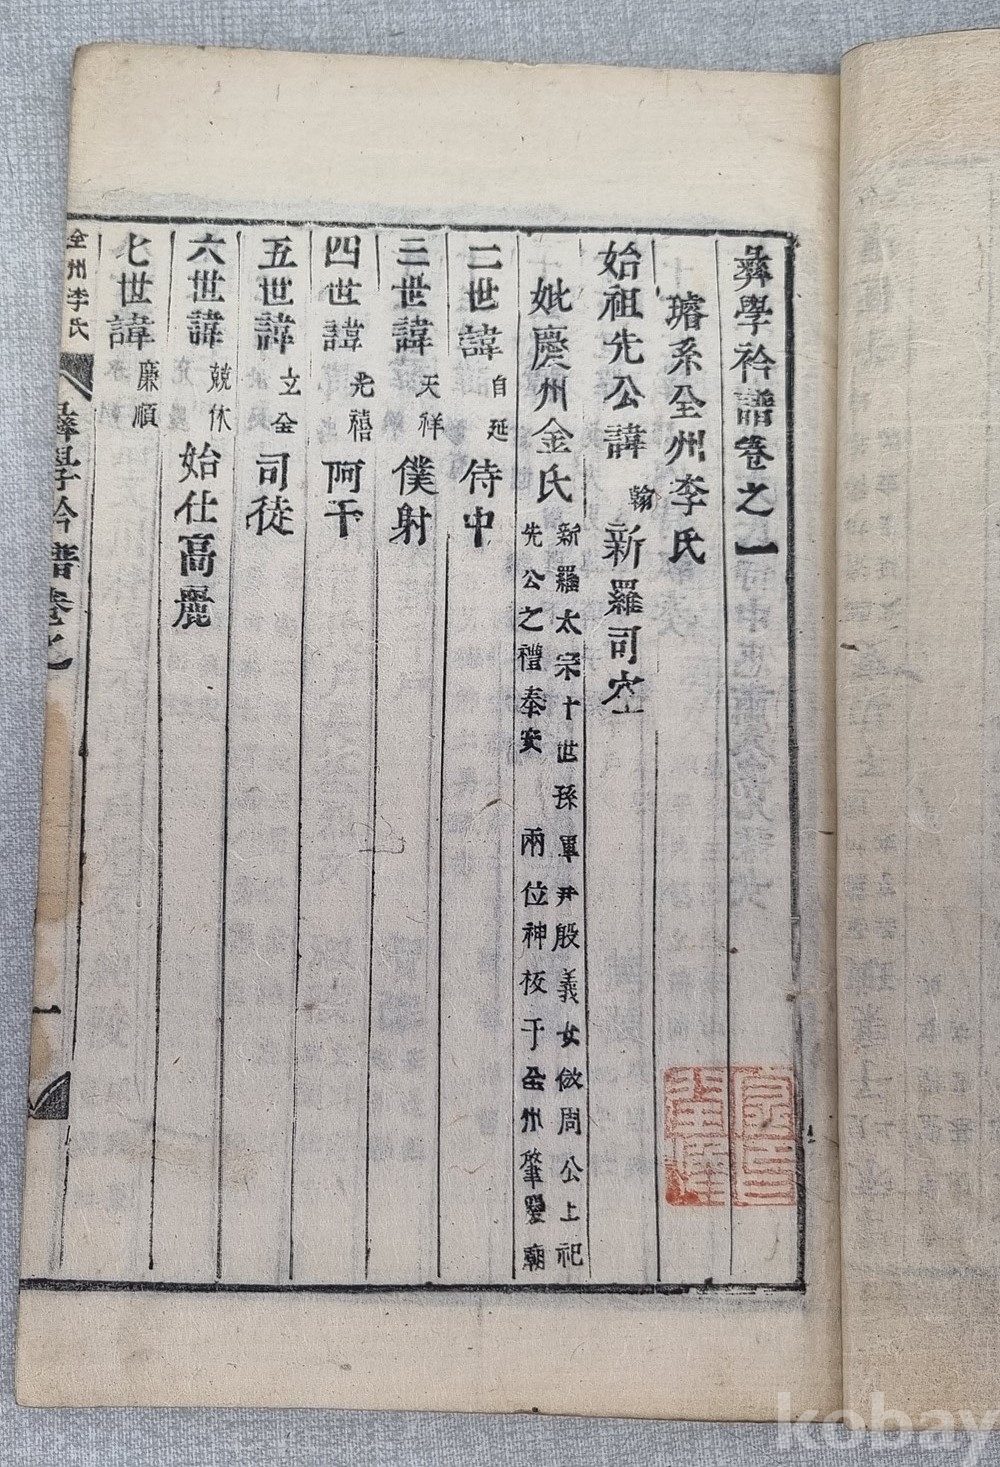 彛學衿譜卷之一
璿系全州李氏
始祖先公諱翰新羅司空
妣慶州金氏
新羅太宗十世孫軍尹殷義女倣周公上祀
先公之禮奉安 兩位神板于全州肇慶廟
二世諱自延侍中
三世諱天祥僕射
四世諱光禧阿干
五世諱立全司徒
六世諱兢休始仕高麗
七世諱廉順
全州李氏
彛學衿譜卷之
一
kobay